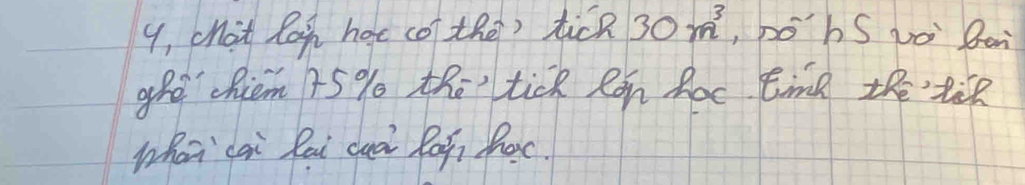 4, Một lớp học có thể tích 30 m³, số hS và bàn
ghế chiếm 75% thể tích lớp học tính thể tích
phần còn lại của lớp học.